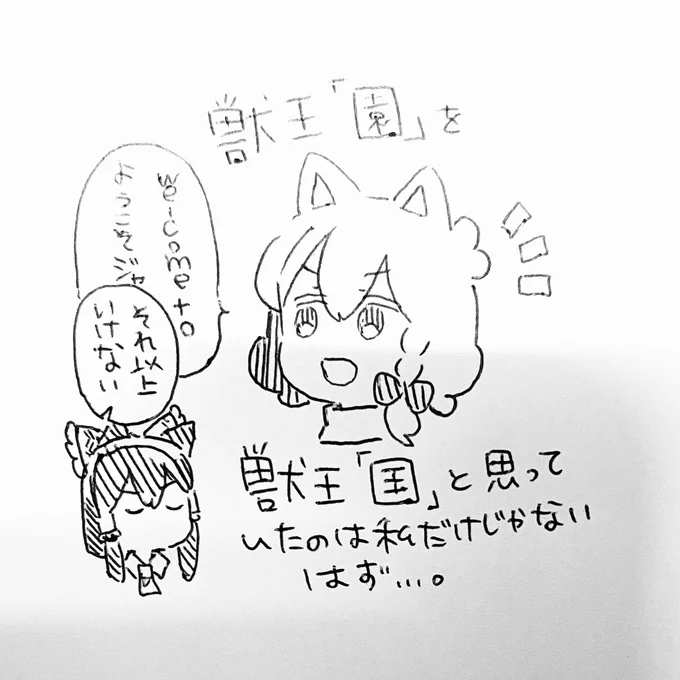 獣王「園」を
welcome to
ようこそジャ
それ以上
いけない
獣王「国」と思って
いたのは私だけじゃない
はず…。